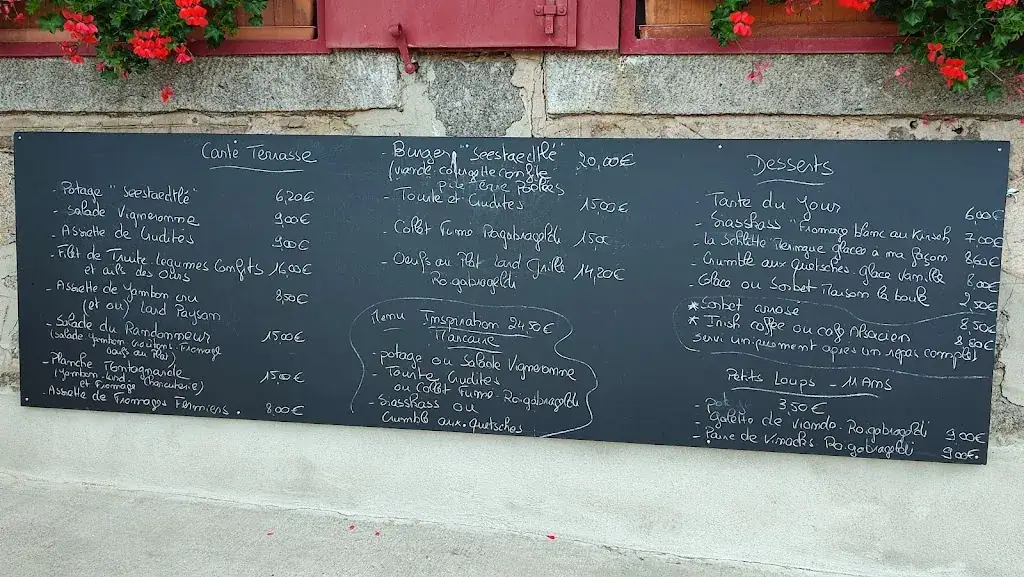 Carte Terrasse
- Potage "Seestaedtlé" 6,20€
- Salade Vigneronne 9,00€
- Assiette de Crudités 9,00€
- Filet de Truite legumes Confits 16,00€
et ails des Ours
- Assiette de Jambon cru 8,50€
(et ou) Lard Paysan
- Salade du Randonneur 15,00€
(Salade Jambon croûtons Fromage
oeufs au Plat)
- Planche Montagnarde 15,00€
(Jambon lard charcuterie)
et Fromage
- Assiette de Fromages Fermiers. 8,00€
Burger "Seestaedtlé" 20,00€
(viande courgette confite
Terre Poêlées
- Tourte et Crudités 15,00€
- Collet Fumé Roigabrageldi 15,00
- Oeufs au Plat Lard Grillé 14,20€
Roigabrageldi
Menu Inspiration 24,50€
Marcaire
- potage ou Salade Vigneronne
- Tourte Crudités
ou Collet Fumé Roigabrageldi
- Siasskass ou
Crumble aux quetsches
Desserts
- Tarte du Jour 6,00€
- Siasskass "Fromage blanc au Kirsch 7,00€
- la Schlitte Meringue glacée à ma façon 8,60€
- Crumble aux Quetsches glace Vanille 8,00€
- Glace ou Sorbet Maison la boule 2,50€
* Sorbet arrosé 8,50€
* Irish coffee ou café Alsacien 8,60€
servi uniquement après un repas complet
Petits Loups - 11 Ans
- 3,50€
- Galette de Viande Roigabrageldi 9,00€
- Paire de Viennacks Roigabrageldi 9,00€.